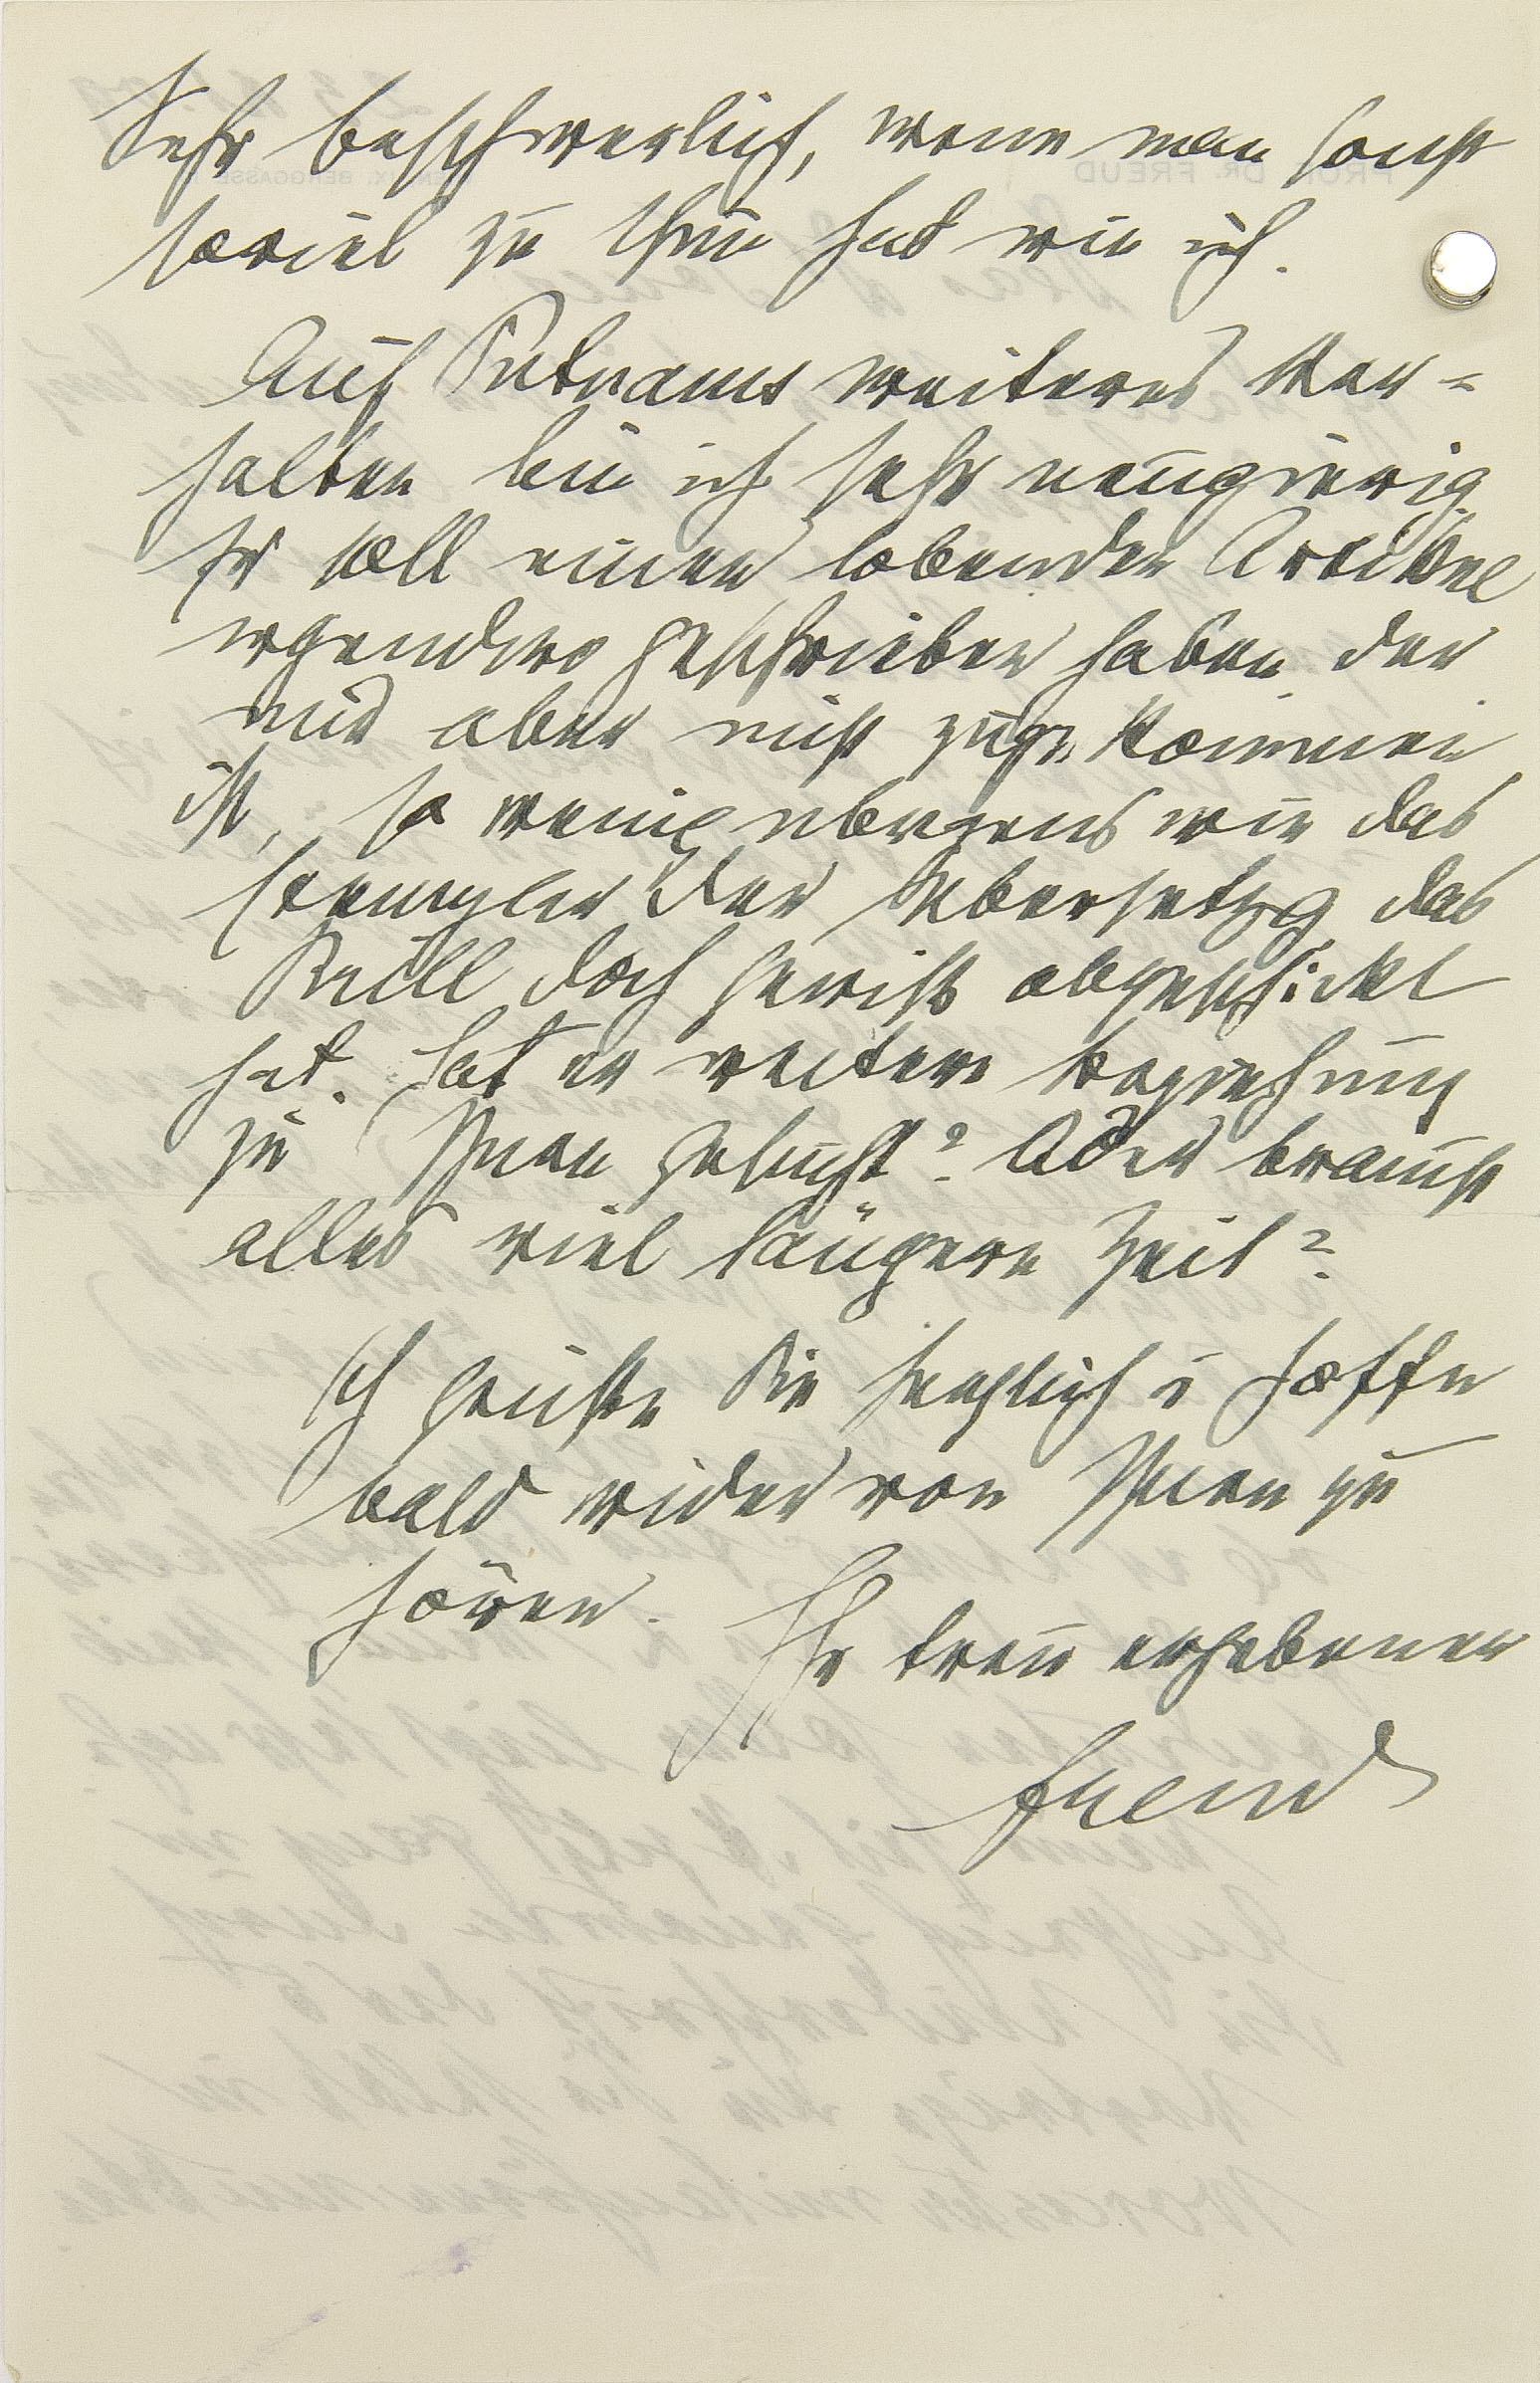 Sehr beschwerlich, wenn man sonst
soviel zu thun hat wie ich.
Auf Putnams weiteres Ver=
halten bin ich sehr neugierig.
Er soll einen lobenden Artikel
irgendwo geschrieben haben der
mir aber nicht zugekommen
ist, so wenig übrigens wie das
Exemplar der Übersetzg das
Brill doch gewiß abgeschickt
hat. Hat er weitere Beziehung
zu Ihnen gesucht? Oder braucht
alles viel längere Zeit?
Ich grüße Sie herzlich u hoffe
bald wieder von Ihnen zu
hören.
Ihr treu ergebener
Freud